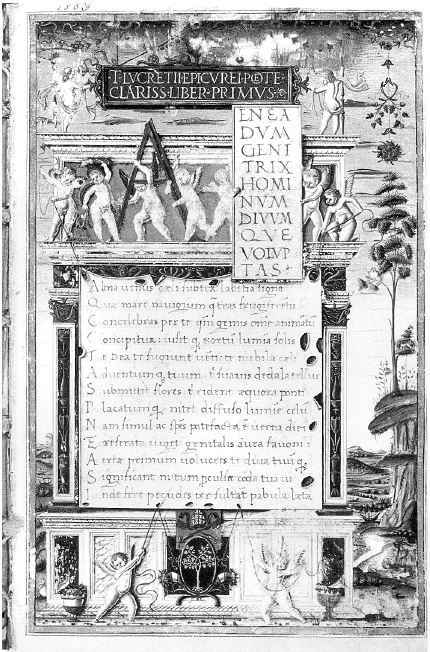 1569
T·LVCRETII·EPICVREI·POTE
CLARISS·LIBER·PRIMVS·
A
ENEA
DVM
GENI
TRIX
HOMI
NVM
DIVVM
QVE
VOLVP
TAS
Alma uenus cæli subter labentia signa
Quæ mare nauigerum q̃ terras frugiferentis
Concelebras per te qm̃ genus omne animantũ
Concipitur: uisitq̧ exortũ lumina solis
Te Dea te fugiunt uenti te nubila cæli
Aduentumq̧ tuum: t suauis dedala tellus
Submittit flores: t rident æquora ponti
Placatumq̧ nitet diffuso lumine celũ
Nam simul ac spẽs patefacta ẽ uerna diei
Et reserata uiget genitalis aura fauoni
Aeriæ primum uolucres te diua tuũq̧
Significant initum perculsæ corda tua ui
Inde feræ pecudes per sultant pabula læta